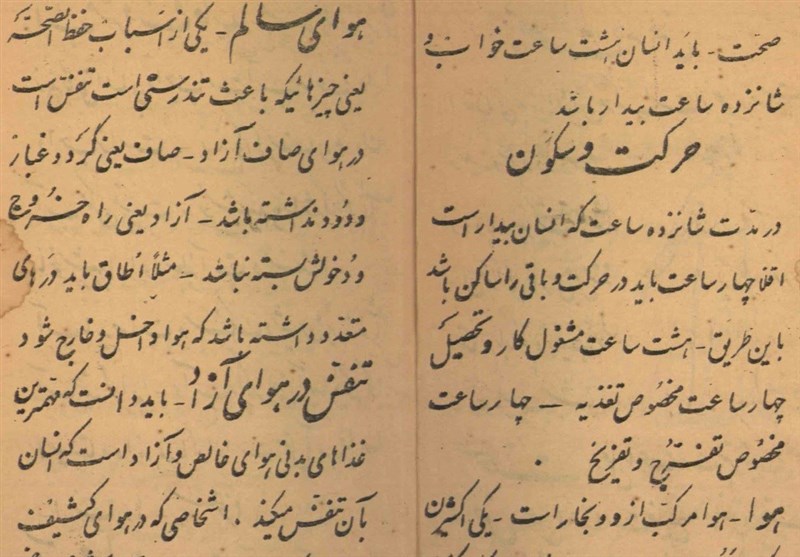 صحت - باید انسان هشت ساعت خواب و
شانزده ساعت بیدار باشد
حرکت و سکون
در مدّت شانزده ساعت که انسان بیدار است
اقلاً چهار ساعت باید در حرکت و باقی را ساکن باشد
باین طریق - هشت ساعت مشغول کار و تحصیل
چهار ساعت مخصوص تغذیه - چهار ساعت
مخصوص تفرّج و تفریح .
هوا - هوا مرکب از دو بخار است - یکی اکثیرن
هوای سالم - یکی از اسباب حفظ الصّحّهٔ
یعنی چیزهائیکه باعث تندرستی است تنفس است
در هوای صاف آزاد - صاف یعنی گرد و غبار
و دود نداشته باشد - آزاد یعنی راه خروج
و دخولش بسته نباشد - مثلاً اطاق باید درهای
متعدد داشته باشد که هوا داخل و خارج شود
تنفس در هوای آزاد - باید دانست که مهمترین
غذاهای بدنی هوای خالص و آزاد است که انسان
بآن تنفس میکند . اشخاصی که در هوای کثیف